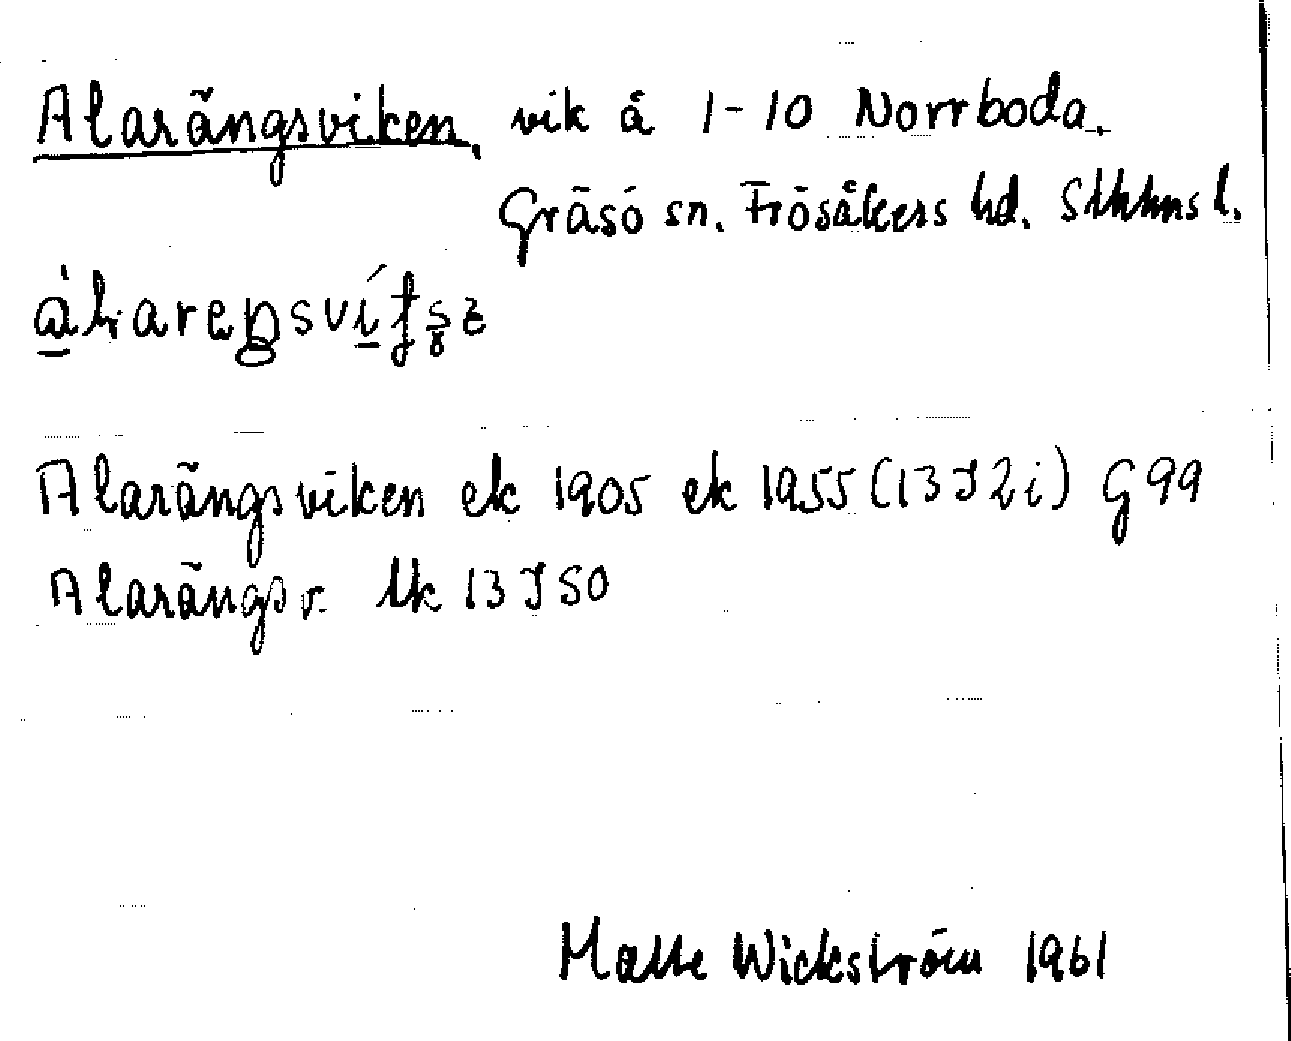 Alarängsviken, vik å 1-10 Norrboda.
Gräsö sn. Frösåkers hd. Sthlms l.
Alarängsviken ek 1905 ek 1955 (13 J 2 i) G 99
Alarängsv. 13 J SO
Malte Wickström 1961